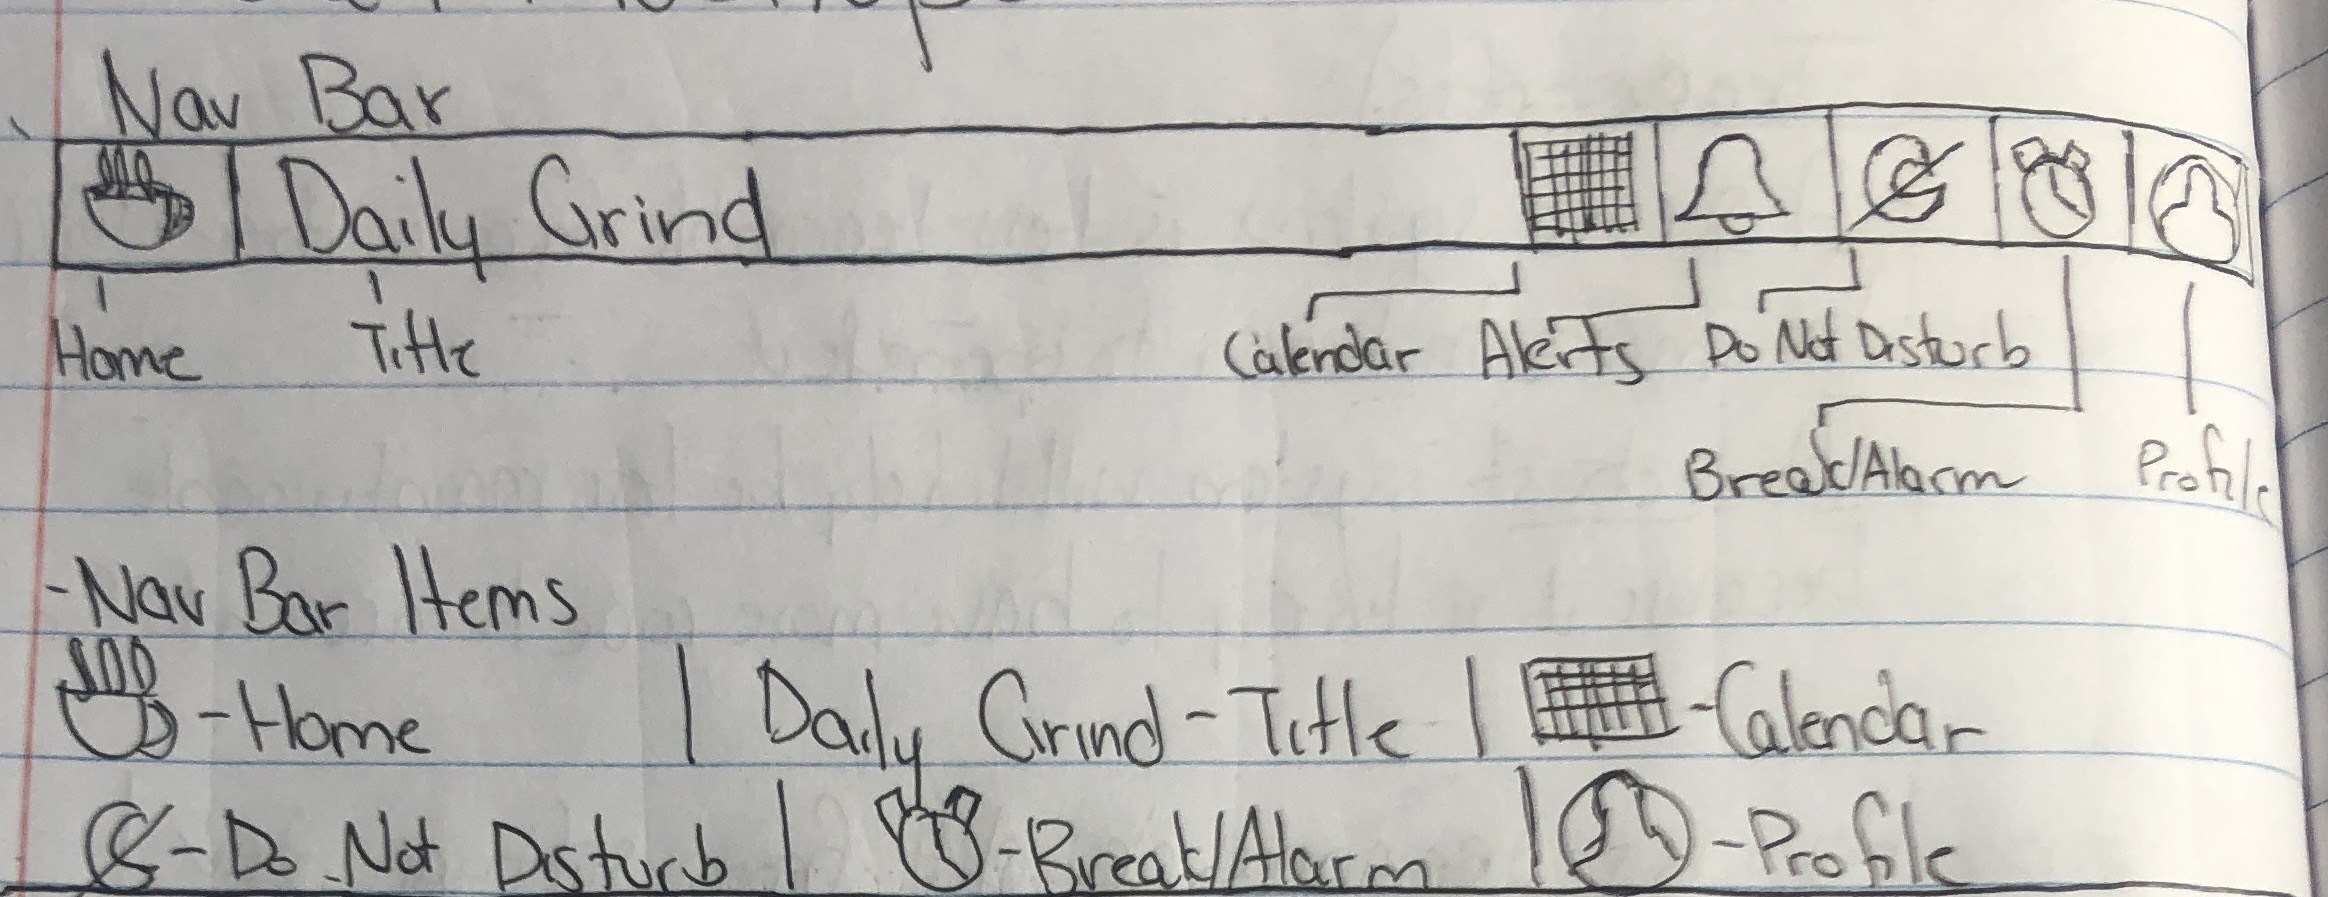 Nav Bar
Daily Grind
Home Title Calendar Alerts Do Not Disturb
Break/Alarm Profile
-Nav Bar Items
-Home | Daily Grind-Title | -Calendar
-Do Not Disturb | -Break/Alarm | -Profile